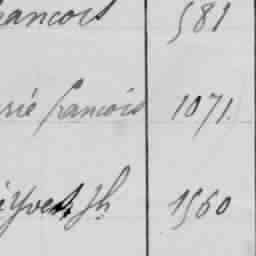 ancois 581
rie francois 1071.
Yves Jh 1560